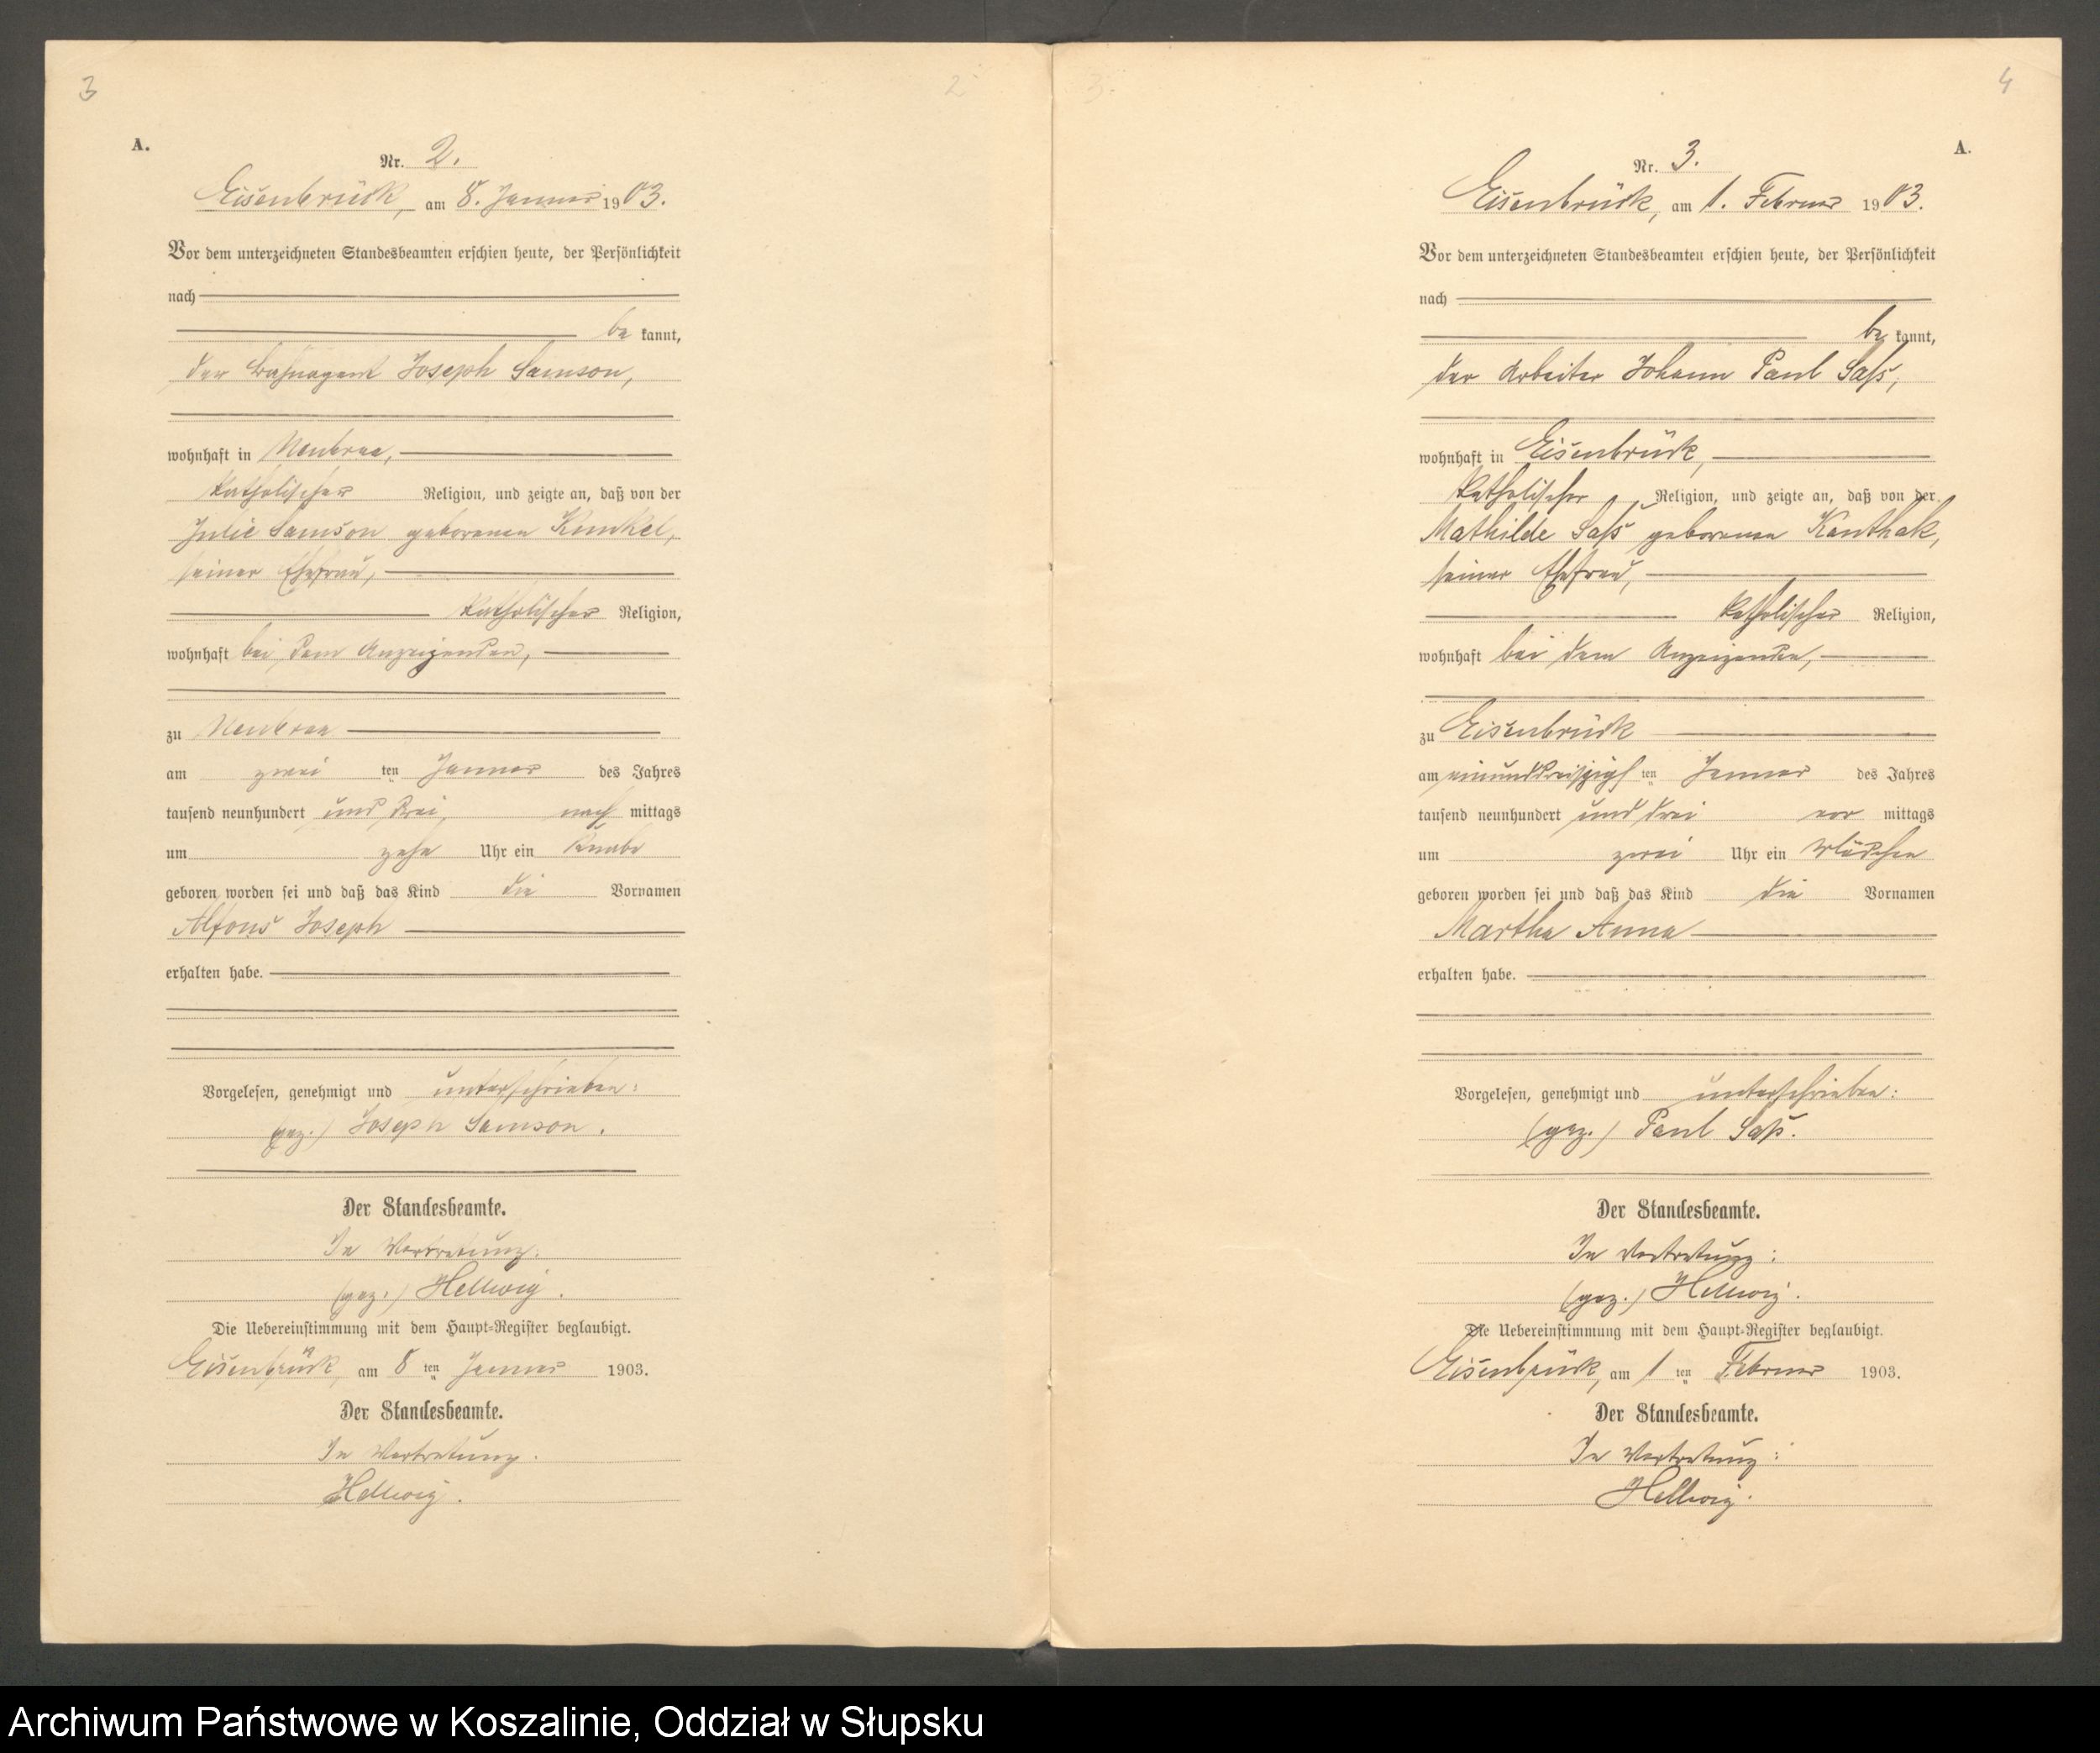 3
2
A.
Nr. 2.
Eisenbrück, am 8. Januar 1903.
Vor dem unterzeichneten Standesbeamten erschien heute, der Persönlichkeit
nach
be kannt,
der Joseph Samson,
wohnhaft in Neubraa,
katholischer Religion, und zeigte an, daß von der
Julie Samson geborenen Kunkel,
seiner Ehefrau,
katholischer Religion,
wohnhaft bei dem Anzeigenden,
zu Neubraa
am zwei ten Januar des Jahres
tausend neunhundert und drei, nach mittags
um zehn Uhr ein Knabe
geboren worden sei und daß das Kind die Vornamen
Alfons Joseph
erhalten habe.
Vorgelesen, genehmigt und unterschrieben:
(gez.) Joseph Samson.
Der Standesbeamte.
In Vertretung:
(gez.) Hellwig.
Die Uebereinstimmung mit dem Haupt-Register beglaubigt.
Eisenbrück, am 8 ten Januar 1903.
Der Standesbeamte.
In Vertretung.
Hellwig.
3.
4
A.
Nr. 3.
Eisenbrück, am 1. Februar 1903.
Vor dem unterzeichneten Standesbeamten erschien heute, der Persönlichkeit
nach
be kannt,
der Arbeiter Johann Paul Saß,
wohnhaft in Eisenbrück,
katholischer Religion, und zeigte an, daß von der
Mathilde Saß geborenen Kanthak,
seiner Ehefrau,
katholischer Religion,
wohnhaft bei dem Anzeigenden,
zu Eisenbrück
am einunddreißigs ten Januar des Jahres
tausend neunhundert und drei vor mittags
um zwei Uhr ein Mädchen
geboren worden sei und daß das Kind die Vornamen
Martha Anna
erhalten habe.
Vorgelesen, genehmigt und unterschrieben:
(gez.) Paul Saß.
Der Standesbeamte.
In Vertretung:
(gez.) Hellwig.
Die Uebereinstimmung mit dem Haupt-Register beglaubigt.
Eisenbrück, am 1 ten Februar 1903.
Der Standesbeamte.
In Vertretung:
Hellwig.
Archiwum Państwowe w Koszalinie, Oddział w Słupsku